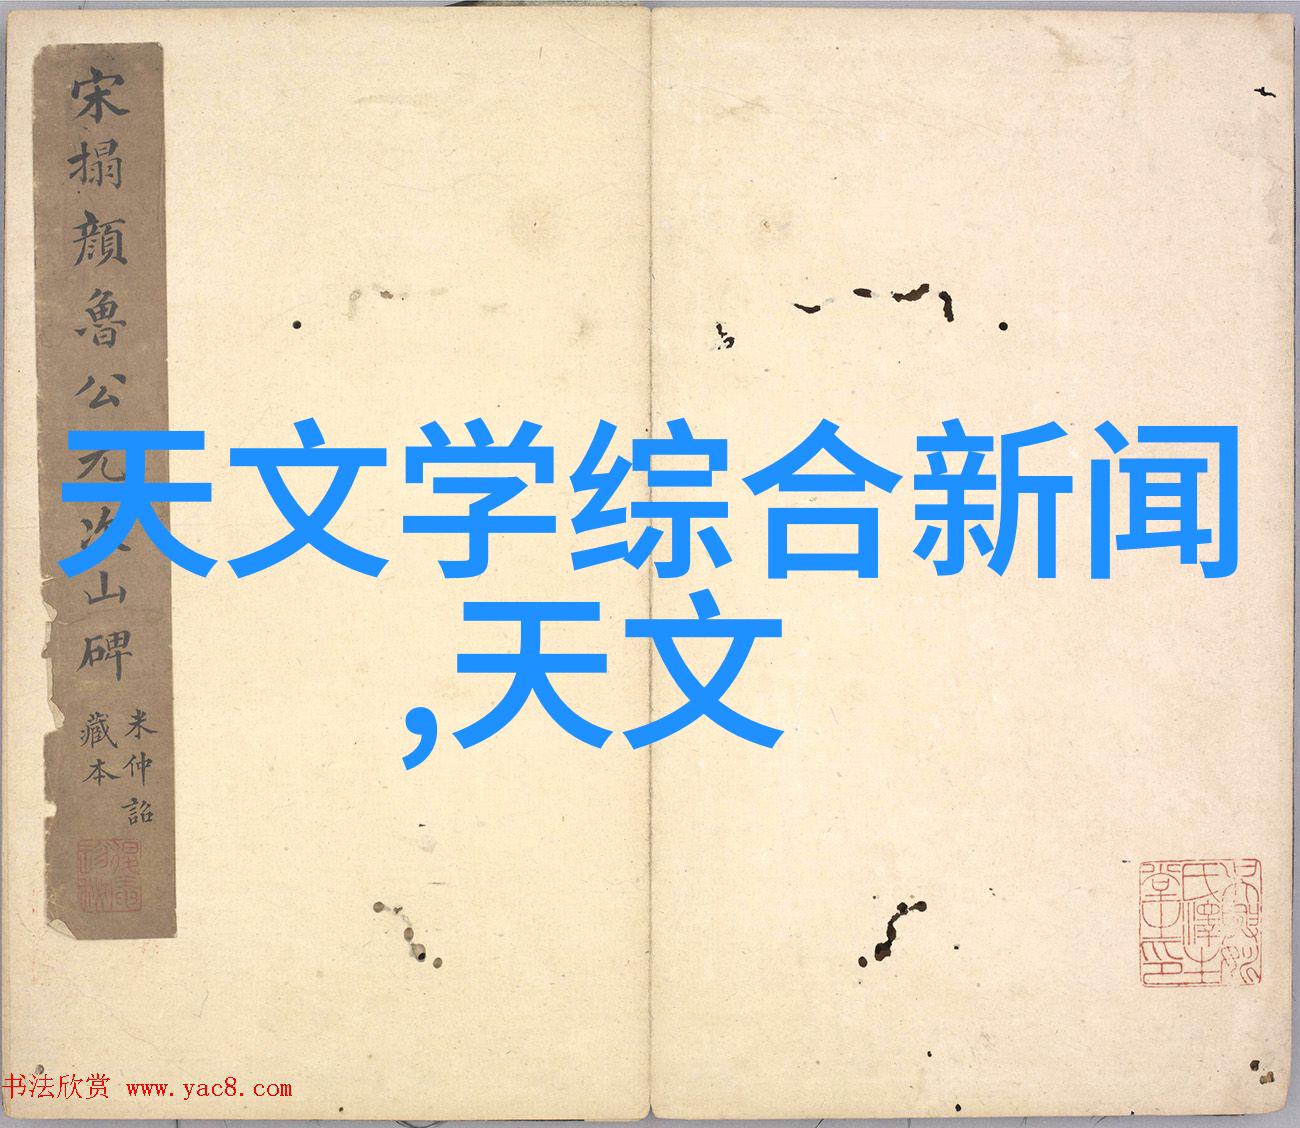 宋搨顔魯公元次山碑
米仲詔
藏本
天文学综合新闻
,天文
书法欣赏 www.yac8.com